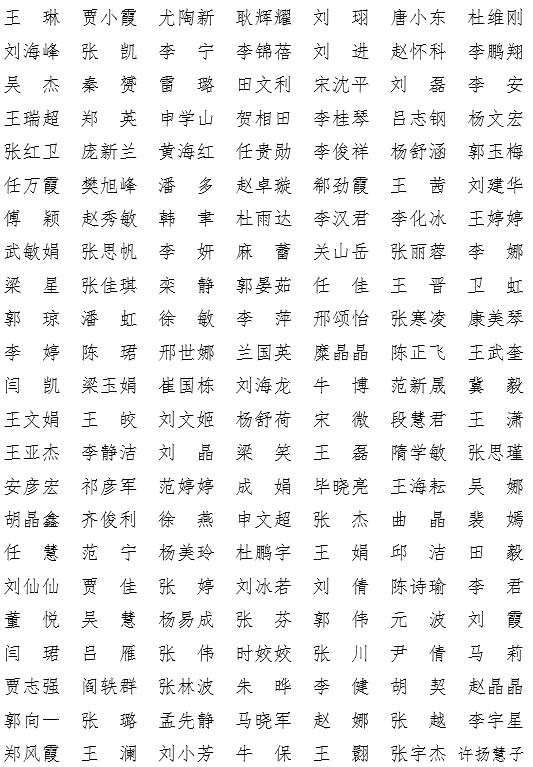 王　琳 贾小霞 尤陶新 耿辉耀 刘　珝 唐小东 杜维刚
刘海峰 张　凯 李　宁 李锦蓓 刘　进 赵怀科 李鹏翔
吴　杰 秦　赟 雷　璐 田文利 宋沈平 刘　磊 李　安
王瑞超 郑　英 申学山 贺相田 李桂琴 吕志钢 杨文宏
张红卫 庞新兰 黄海红 任贵勋 李俊祥 杨舒涵 郭玉梅
任万霞 樊旭峰 潘　多 赵卓璇 郗劲霞 王　茜 刘建华
傅　颖 赵秀敏 韩　聿 杜雨达 李汉君 李化冰 王婷婷
武敏娟 张思帆 李　妍 麻　蕾 关山岳 张丽蓉 李　娜
梁　星 张佳琪 栾　静 郭晏茹 任　佳 王　晋 卫　虹
郭　琼 潘　虹 徐　敏 李　萍 邢颂怡 张寒凌 康美琴
李　婷 陈　珺 邢世娜 兰国英 糜晶晶 陈正飞 王武奎
闫　凯 梁玉娟 崔国栋 刘海龙 牛　博 范新晟 冀　毅
王文娟 王　皎 刘文姬 杨舒荷 宋　微 段慧君 王　潇
王亚杰 李静洁 刘　晶 梁　笑 王　磊 隋学敏 张思瑾
安彦宏 祁彦军 范婷婷 成　娟 毕晓亮 王海耘 吴　娜
胡晶鑫 齐俊利 徐　燕 申文超 张　杰 曲　晶 裴　嫣
任　慧 范　宁 杨美玲 杜鹏宇 王　娟 邱　洁 田　毅
刘仙仙 贾　佳 张　婷 刘冰若 刘　倩 陈诗瑜 李　君
董　悦 吴　慧 杨易成 张　芬 郭　伟 元　波 刘　霞
闫　珺 吕　雁 张　伟 时姣姣 张　川 尹　倩 马　莉
贾志强 阎轶群 张林波 朱　晔 李　健 胡　契 赵晶晶
郭向一 张　璐 孟先静 马晓军 赵　娜 张　越 李宇星
郑风霞 王　澜 刘小芳 牛　保 王　翾 张宇杰 许扬慧子